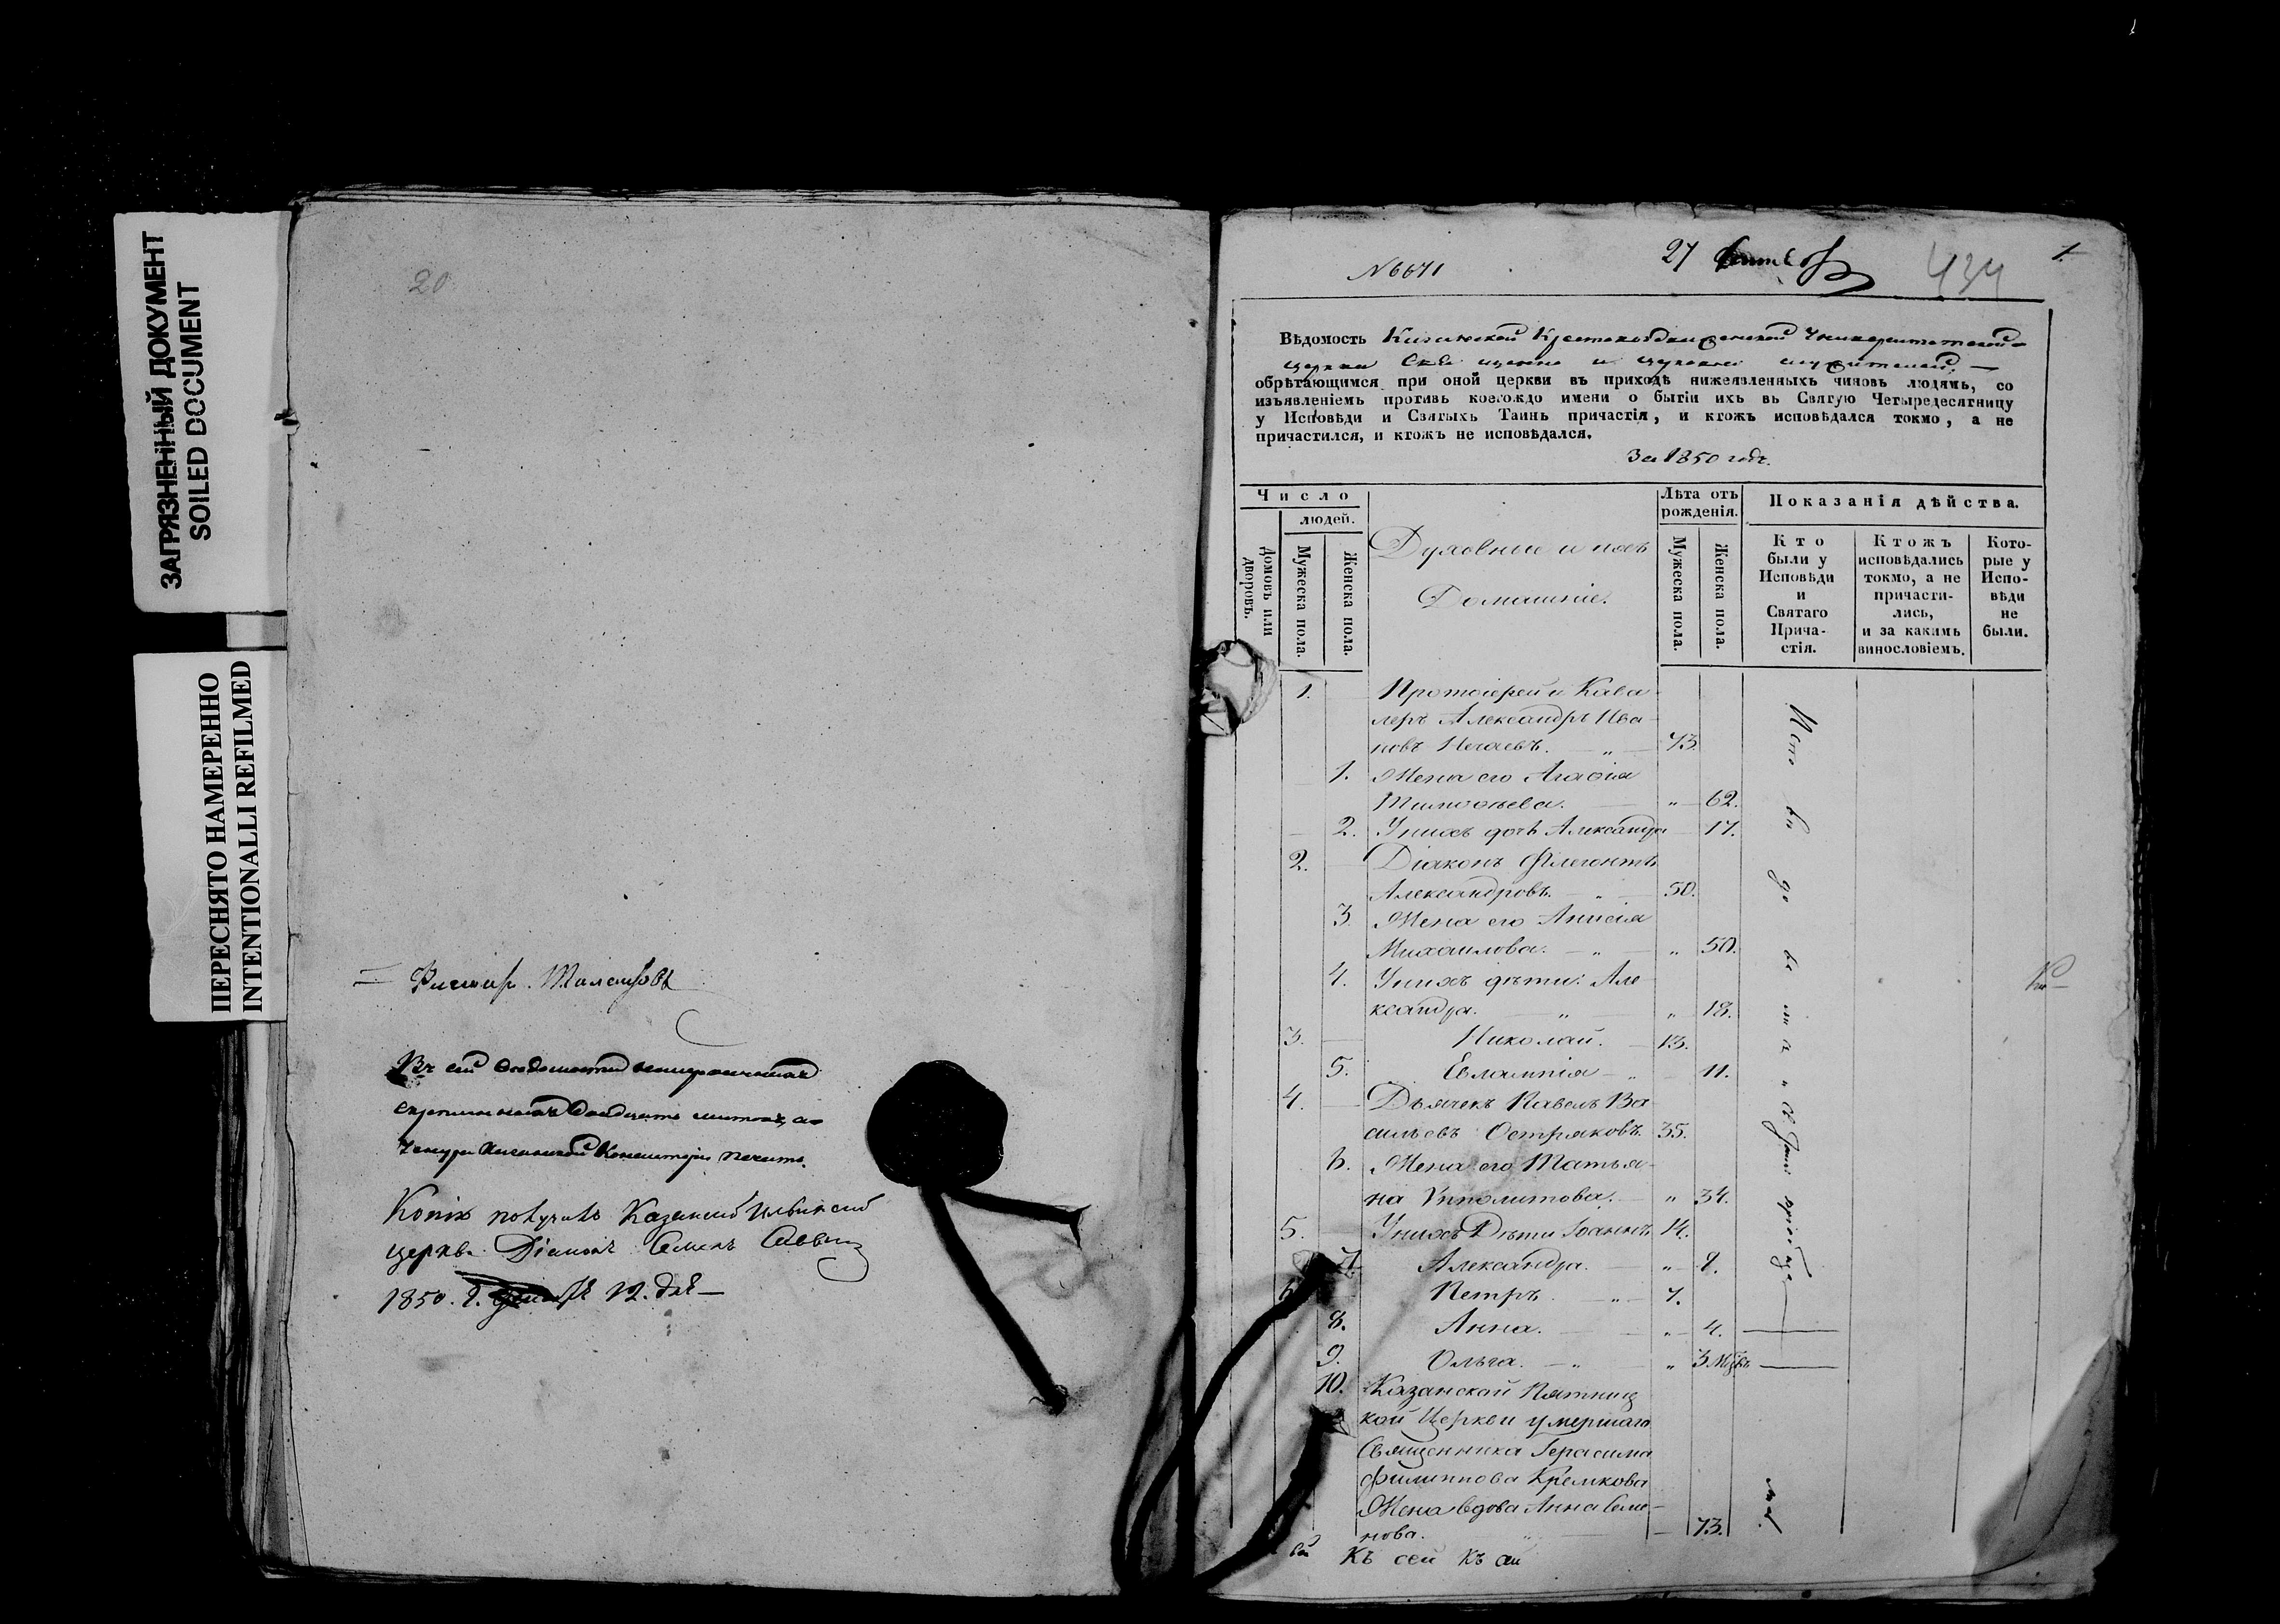 ЗАГРЯЗНЕННЫЙ ДОКУМЕНТ
SOILED DOCUMENT
ПЕРЕСНЯТО НАМЕРЕННО
INTENTIONALLI REFILMED
20
Въ сей
листовъ, а
Печать.
Копію получилъ Казанской Ильинской
церкви Діаконъ Семенъ
1850. 12. дня
N 6671
27
434
1.
Вѣдомость Казанской Крестовоздвиженской Университетской
церкви Священно и церковно служителей,
обрѣтающимся при оной церкви въ приходѣ нижеявленныхъ чиновъ людямъ, со
изъявленіемъ противъ коегождо имени о бытіи ихъ въ Святую Четыредесятницу
у Исповѣди и Святыхъ Таинъ причастія, и ктожъ исповѣдался токмо, а не
причастился, и ктожъ не исповѣдался.
За 1850 годъ.
Число
людей.
Домовъ или дворовъ.
Мужеска пола.
Женска пола.
Духовные и ихъ
Домашніе.
Лѣта отъ рожденія.
Мужеска пола.
Женска пола.
Показанія дѣйства.
Кто были у Исповѣди и Святаго Прича-стія.
Ктожъ исповѣдались токмо, а не причасти-лись, и за какимъ винословіемъ.
Кото-рые у Испо-вѣди не были.
1. Протоіерей и Кава
леръ Александръ Ива
новъ Нечаевъ. „ 73.
1. Жена его Агафія
Тимофѣева. „ 62.
2. У нихъ дочь Александра 17.
2. Діаконъ Флегонтъ
Александровъ. „ 50.
3. Жена его Анисія
Михаилова. „ „ 50.
4. У нихъ дѣти: Але
ксандра. „ „ 18.
3. Николай. 13.
5. Евлампія „ 11.
4. Дьячекъ Павелъ Ва
сильевъ Остряковъ. 35.
6. Жена его Татья
на Ипполитова. „ 34.
5. У нихъ Дѣти Іоаннъ 14.
7. Александра. „ 9.
6. Петръ. „ 7.
8. Анна. „ 4.
9. Ольга. „ „ 3
10. Казанской Пятниц
кой Церкви умершаго
Священника Герасима
Филиппова Кремкова
Жена вдова Анна Семе
нова. „ 73.
Къ сей